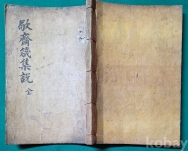 敬齋箴集說 全
kobay